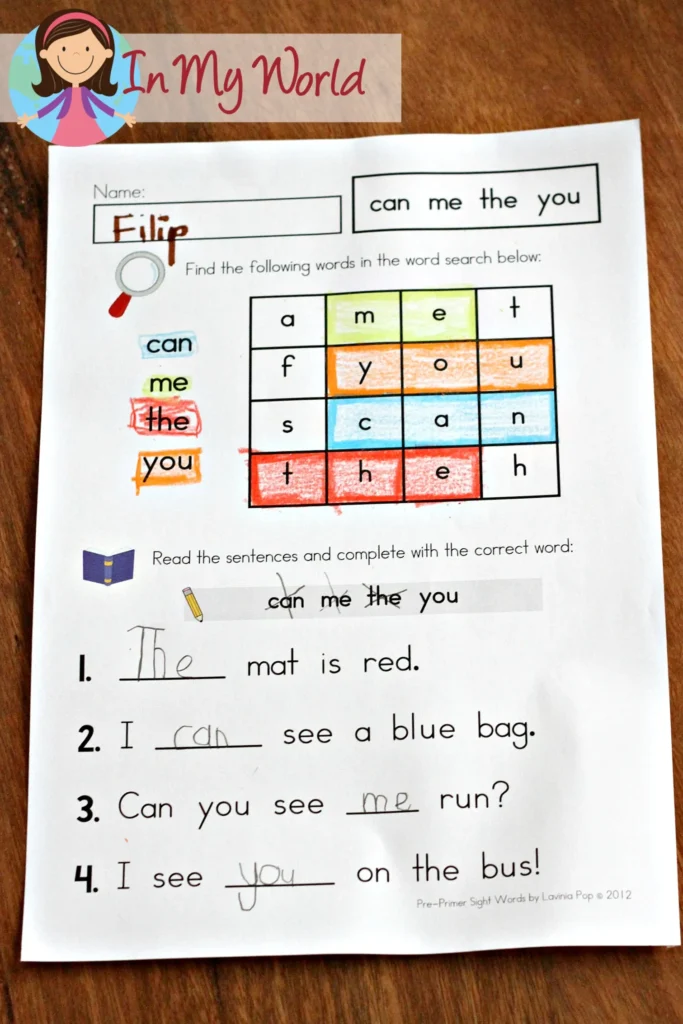 In My World
Name:
Filip
can me the you
Find the following words in the word search below:
can
me
the
you
a m e t
f y o u
s c a n
t h e h
Read the sentences and complete with the correct word:
can me the you
1. The mat is red.
2. I can see a blue bag.
3. Can you see me run?
4. I see you on the bus!
Pre-Primer Sight Words by Lavinia Pop © 2012